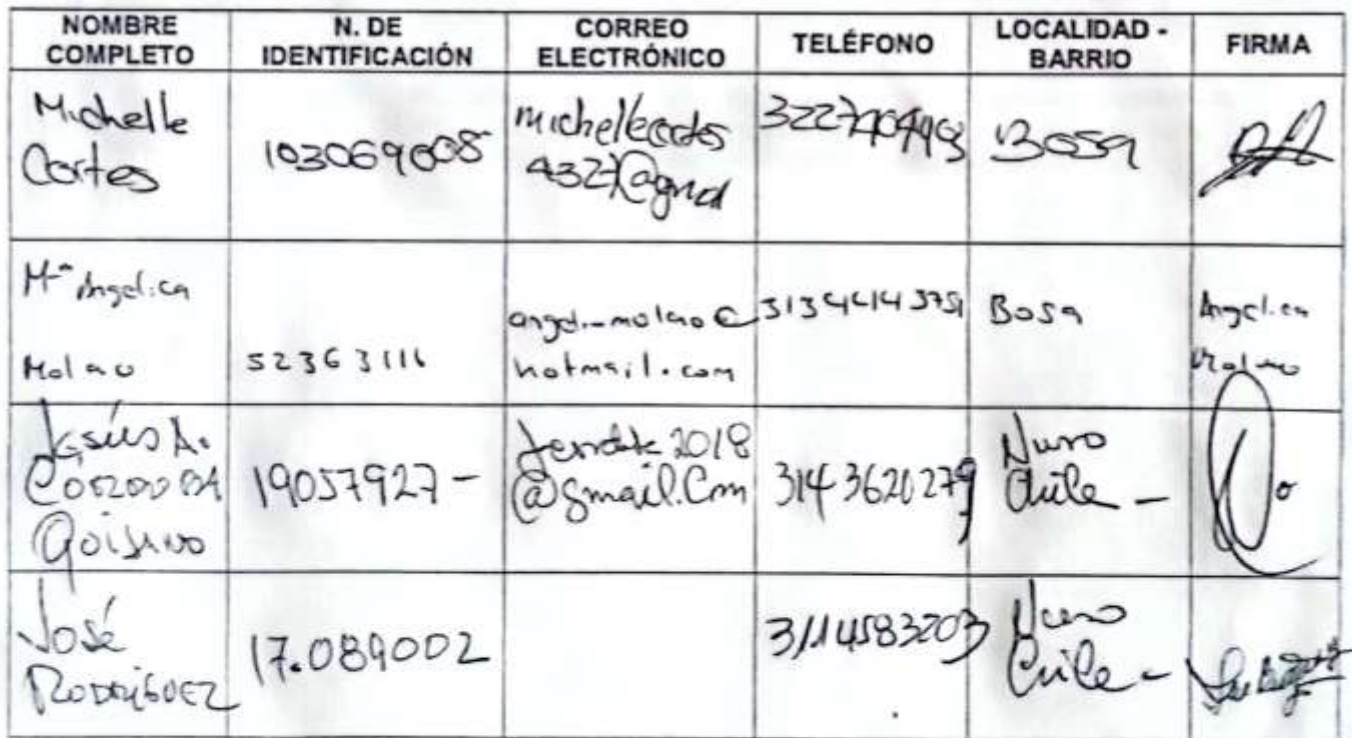 NOMBRE COMPLETO
N. DE IDENTIFICACIÓN
CORREO ELECTRÓNICO
TELÉFONO
LOCALIDAD - BARRIO
FIRMA
Michelle
Cortes
103069008
michellecortes
4327@gmail
Bosa
Mª Angelica
Molano
52363116
hotmail.com
Bosa
Angelica
Molano
Jesús A.
19057927-
2018
@gmail.Com
3143620279
Nuevo
Chile -
José
RODRÍGUEZ
17.089002
3114583203
Nuevo
Chile -